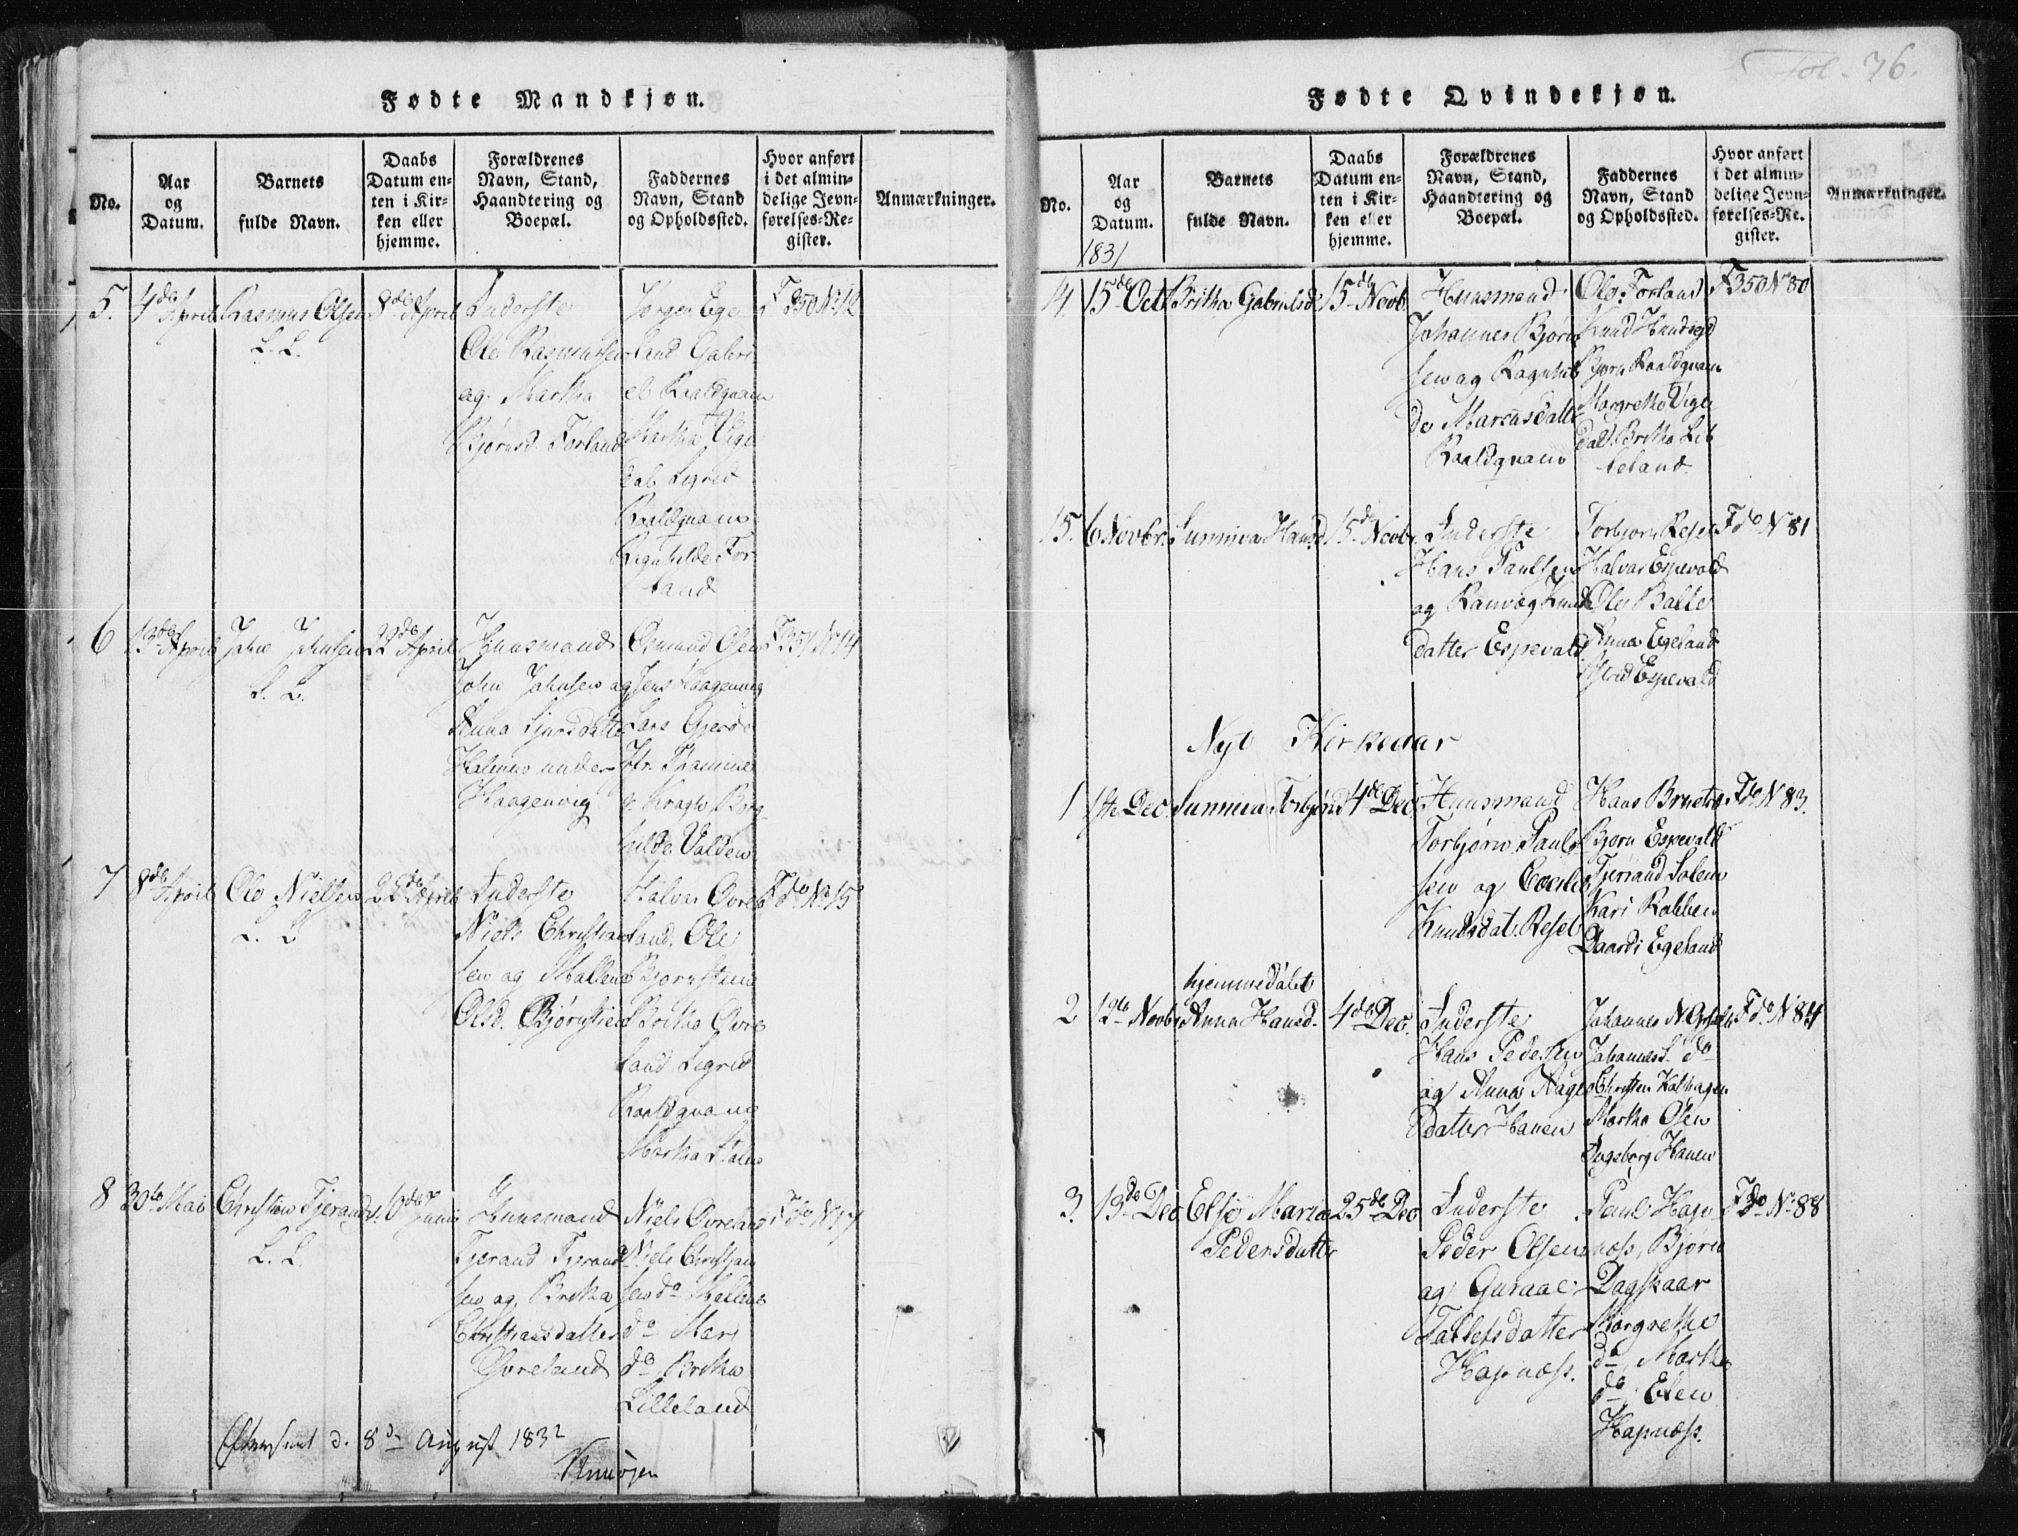 Fødte Mandkjøn.
No.
Aar
og
Datum.
Barnets
fulde Navn.
Daabs
Datum en-
ten i Kir-
ken eller
hjemme.
Forældrenes
Navn, Stand,
Haandtering og
Boepæl.
Faddernes
Navn, Stand
og Opholdssted.
Hvor anført
i det almin-
delige Jevn-
førelses-Re-
gister.
Anmærkninger.
5.
4de April
Rasmus Olsen
L. L.
8de April
Inderste
Ole Rasmussen
og Martha
Bjørnsd. Forland
Jørgen Ege
land Gabri
el Raaldqvam
Martha Vige
dal Sigrid
Raaldqvam
Ragnhilde For-
land
F 350 No 12
6
13de April
John Johnsen
L. L.
22de April
Huusmand
John Johnsen og
Anna Sjursdatter
Halenes under
Haagenvig
Osmund Olsen
Jens Haagenvig
Lars Gjerde
Hr. Thamine
v. Kragh Borg
hilde Valden
F 351 No 14
7
8de April
Ole Nielsen
L. L
22de April
Inderste
Niels Christian
sen og Mallene
Olsd. Bjørnstien
Halvar Øvre
land, Ole
Bjørnstein
Britha Øvre
land Sigrid
Raaldqvam
Martha
F do No 15
8
30te Mai
Christian Tjerands.
L. L.
10de Junii
Huusmand
Tjerand Tjerand
sen og Britha
Christiansdatter
Øvreland
Niels Øvreland
Niels Christian
sen do Mallene
do Mari
do Britha
Lilleland
F do No 17
8de August 1832
Fol. 76.
Fødte Qvindekjøn.
No.
Aar
og
Datum.
1831
Barnets
fulde Navn.
Daabs
Datum en-
ten i Kir-
ken eller
hjemme.
Forældrenes
Navn, Stand,
Haandtering og
Boepæl.
Faddernes
Navn, Stand
og Opholdssted.
Hvor anført
i det almin-
delige Jevn-
førelses-Re-
gister.
Anmærkninger.
14.
15de Oct
Britha Gabrielsd.
15de Novbr.
Huusmand
Johannes Bjørn
sen og Ragnhil
de Marcusdatter
Raaldqvam
Ole Forland
Knud
Bjørn Raaldqvam
Margrethe Vige
dal Britha Lil
leland
F 350 No 80
15.
6 Novbr.
Sunniva Hansd
15de Novbr.
Inderste
Hans Paulsen
og Ranveg Knuds
datter Espevald
Torbjørn Resel
Halvar Espevold
Ole Balle
Anna Egeland
Astrid Espevald
F do No 81
Nyt Kirkeaar
1
1ste Dec
Sunniva Torbjørnsd
4de Dec
Huusmand
Torbjørn Pauls
sen og
Knudsdat. Resel
Hans
Bjørn Espevald
Tjerand Solem
Kari Rabben
Egeland
F do No 83.
2
12te Novbr
hjemmedøbt
Anna Hansd.
4de Dec.
Inderste
Hans Pedersen
og Anna Aage
datter Hanen
Johannes N
Johannes L. do
Christen Kolhagen
Martha Olsen
Ingeborg Hanen
F do No 84
3.
13de Dec
Elsje Maria
Pedersdatter
25de Dec
Inderste
Peder Olsen
og Guraae
Tallefsdatter
Hapnæss.
Paul Hap
næss, Bjørn
Dagskaar
Margrethe
do Martha
do Elen
Hapnæss.
F do No 88